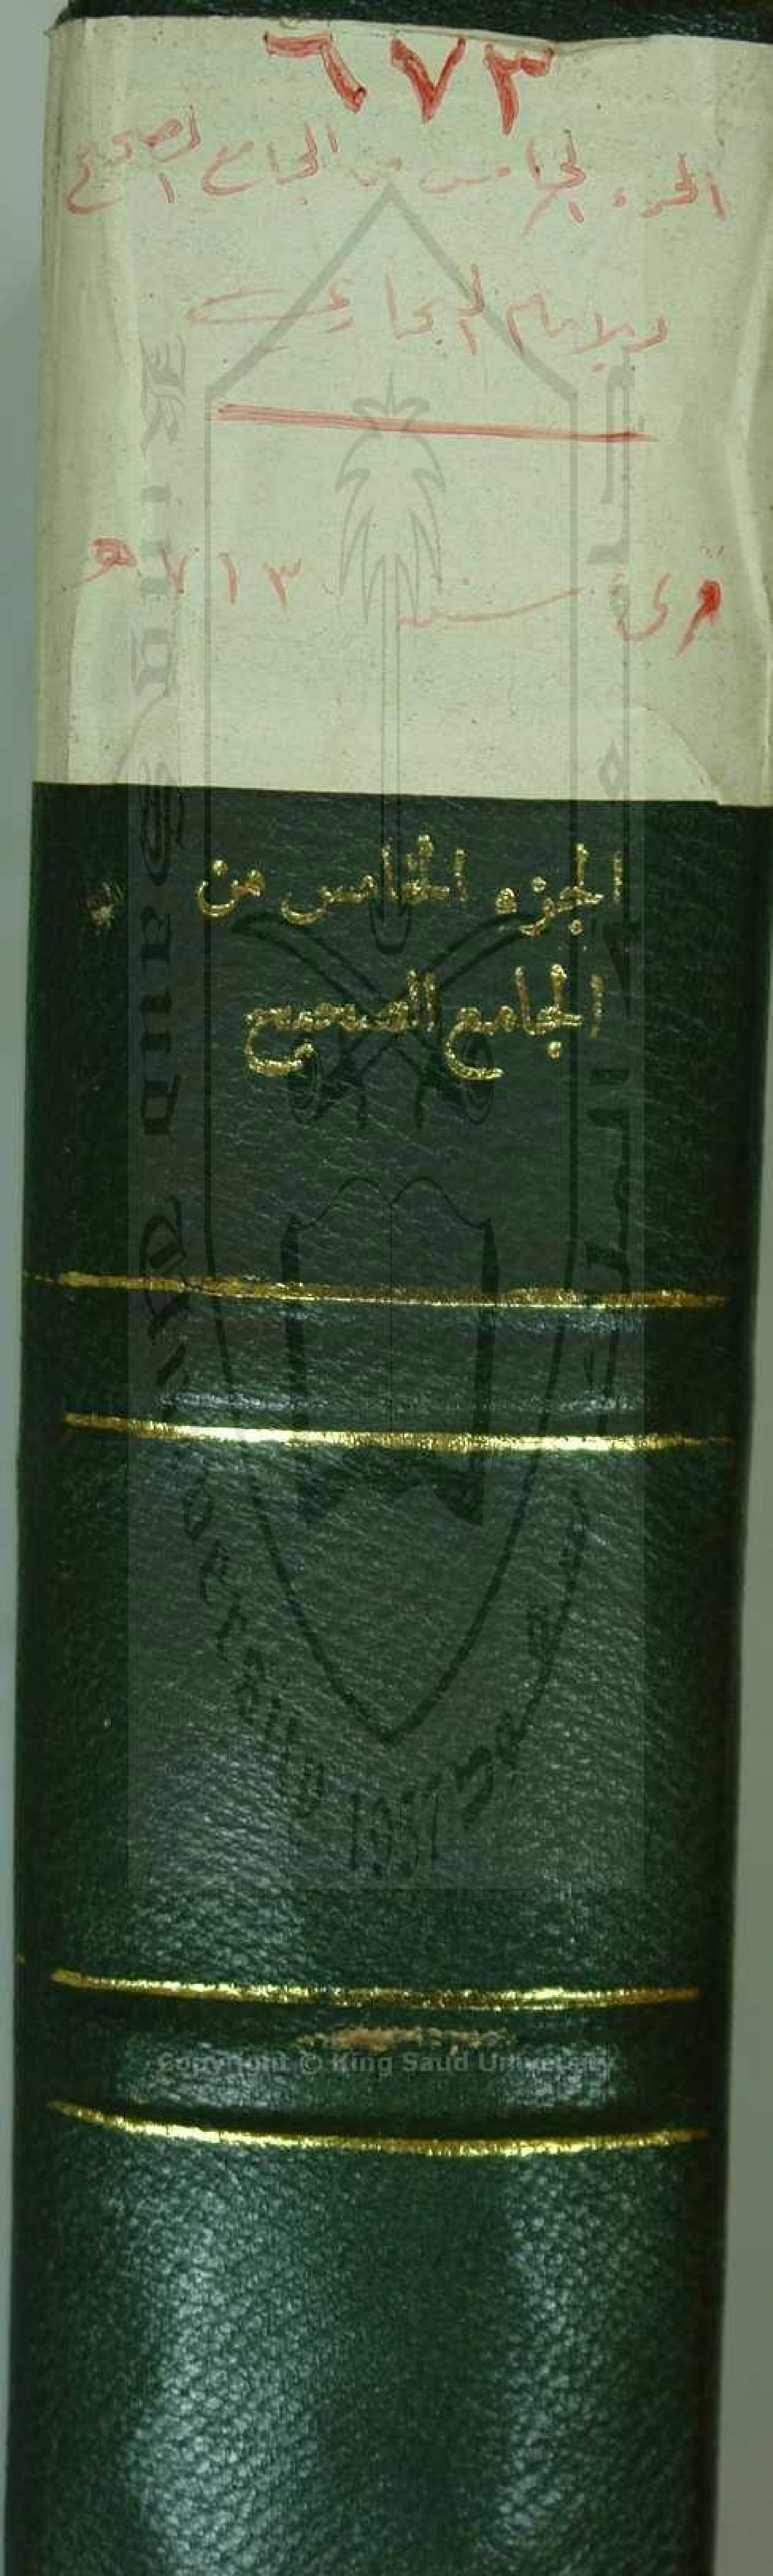 ٦٧٣
الجزء الخامس من الجامع الصحيح
للإمام البخاري
قرئ سنة ٧١٣ هـ
الجزء الخامس من
الجامع الصحيح
King Saud University
1957
Copyright © King Saud University